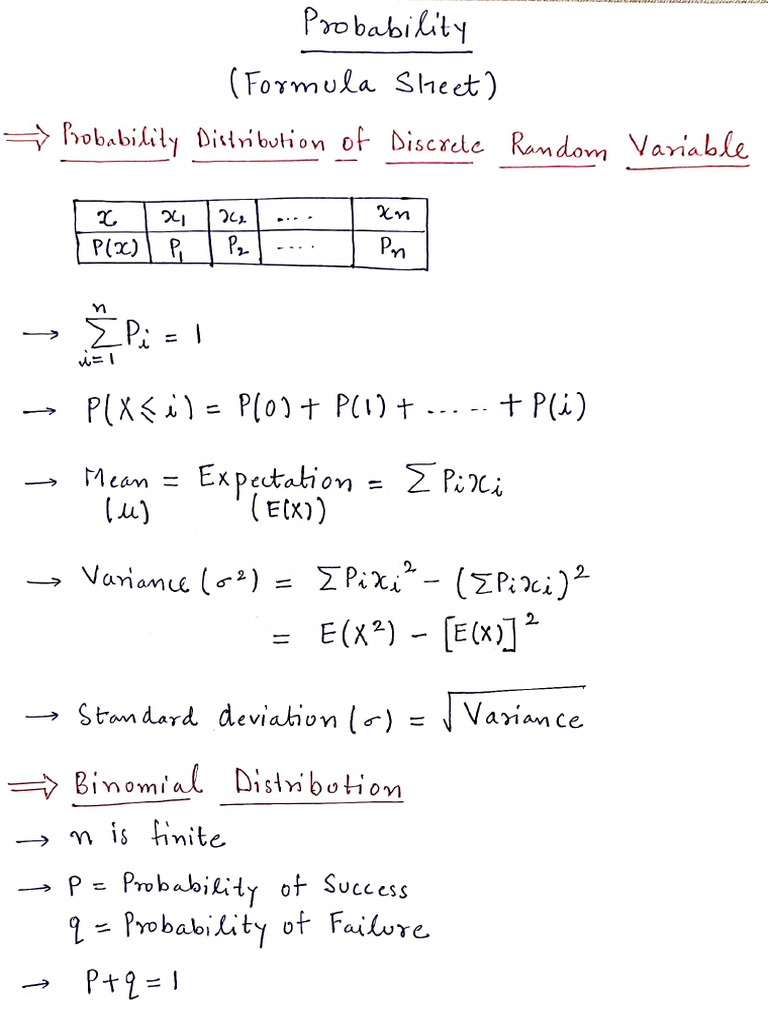 Probability
(Formula Sheet)
⇒ Probability Distribution of Discrete Random Variable
x x₁ x₂ .... xn
P(x) P₁ P₂ .... Pn
→ n
∑ Pi = 1
i=1
→ P(X ⩽ i) = P(0) + P(1) + ..... + P(i)
→ Mean = Expectation = ∑ Pixi
(μ) (E(X))
→ Variance (σ²) = ∑Pixi² - (∑Pixi)²
= E(X²) - [E(X)]²
→ Standard deviation (σ) = √Variance
⇒ Binomial Distribution
→ n is finite
→ P = Probability of Success
q = Probability of Failure
→ P+q = 1